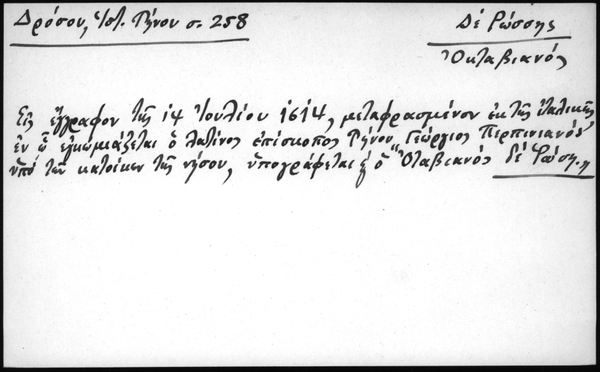 Δρόσου, Ἱστ. Τήνου σ. 258
Δέ Ρώσσης
Ὀκταβιανός
Εἰς ἔγγραφον τῆς 14 Ἰουλίου 1614, μεταφρασμένον ἐκ τῆς ἰταλικῆς
ἐν ᾧ ἐγκωμιάζεται ὁ λατῖνος ἐπίσκοπος Τήνου Γεώργιος Περπινιανός
ὑπό τῶν κατοίκων τῆς νήσου, ὑπογράφεται καί ὁ "Ὀταβιανός δέ Ρώση."